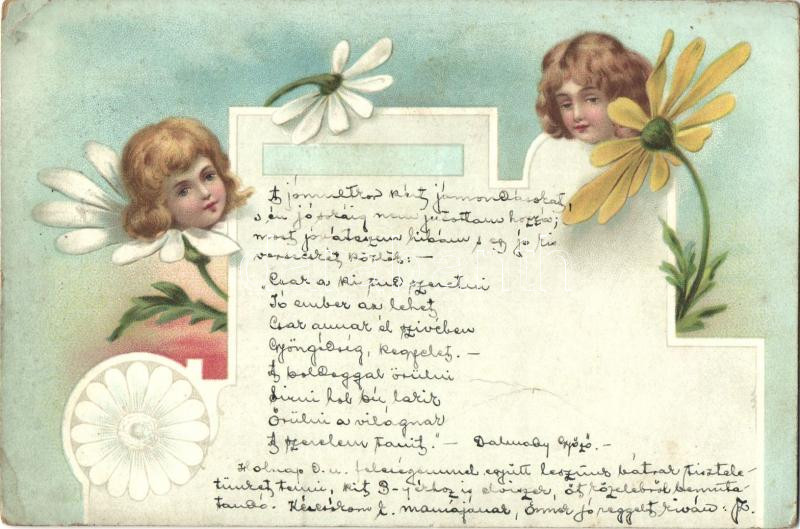 A jómultkor kért jómondásokat,
s én jó soráig nem jutottam hozzá;
most jóváteszem hibám s egy jó kis
versecskét közlök: –
"Csak a ki tud szeretni
Jó ember az lehet
Csak annak él szivében
Gyöngédség, kegyelet. –
A boldoggal örülni
Sirni hol bú lakik
Örülni a világnak
A szerelem tanit." – Dalmady Győző. –
Holnap d. u. feleségemmel együtt leszünk bátrak tisztele-
tünket tenni, kit B-ékhoz is elviszek, őt közelebbről bemuta-
tandó. Kézcsókom k. mamájának, Önnek jó reggelt kíván: